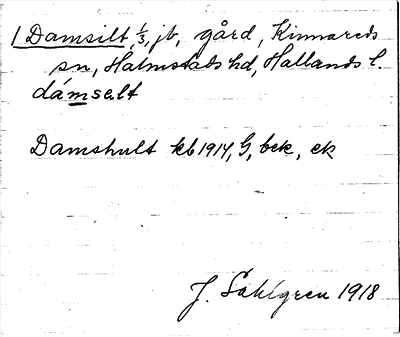 1 Damsilt, 1/3, jb, gård, Kinnareds
sn, Halmstads hd, Hallands l.
dámselt
Damshult kb 1914, G, bck, ek
J. Sahlgren 1918